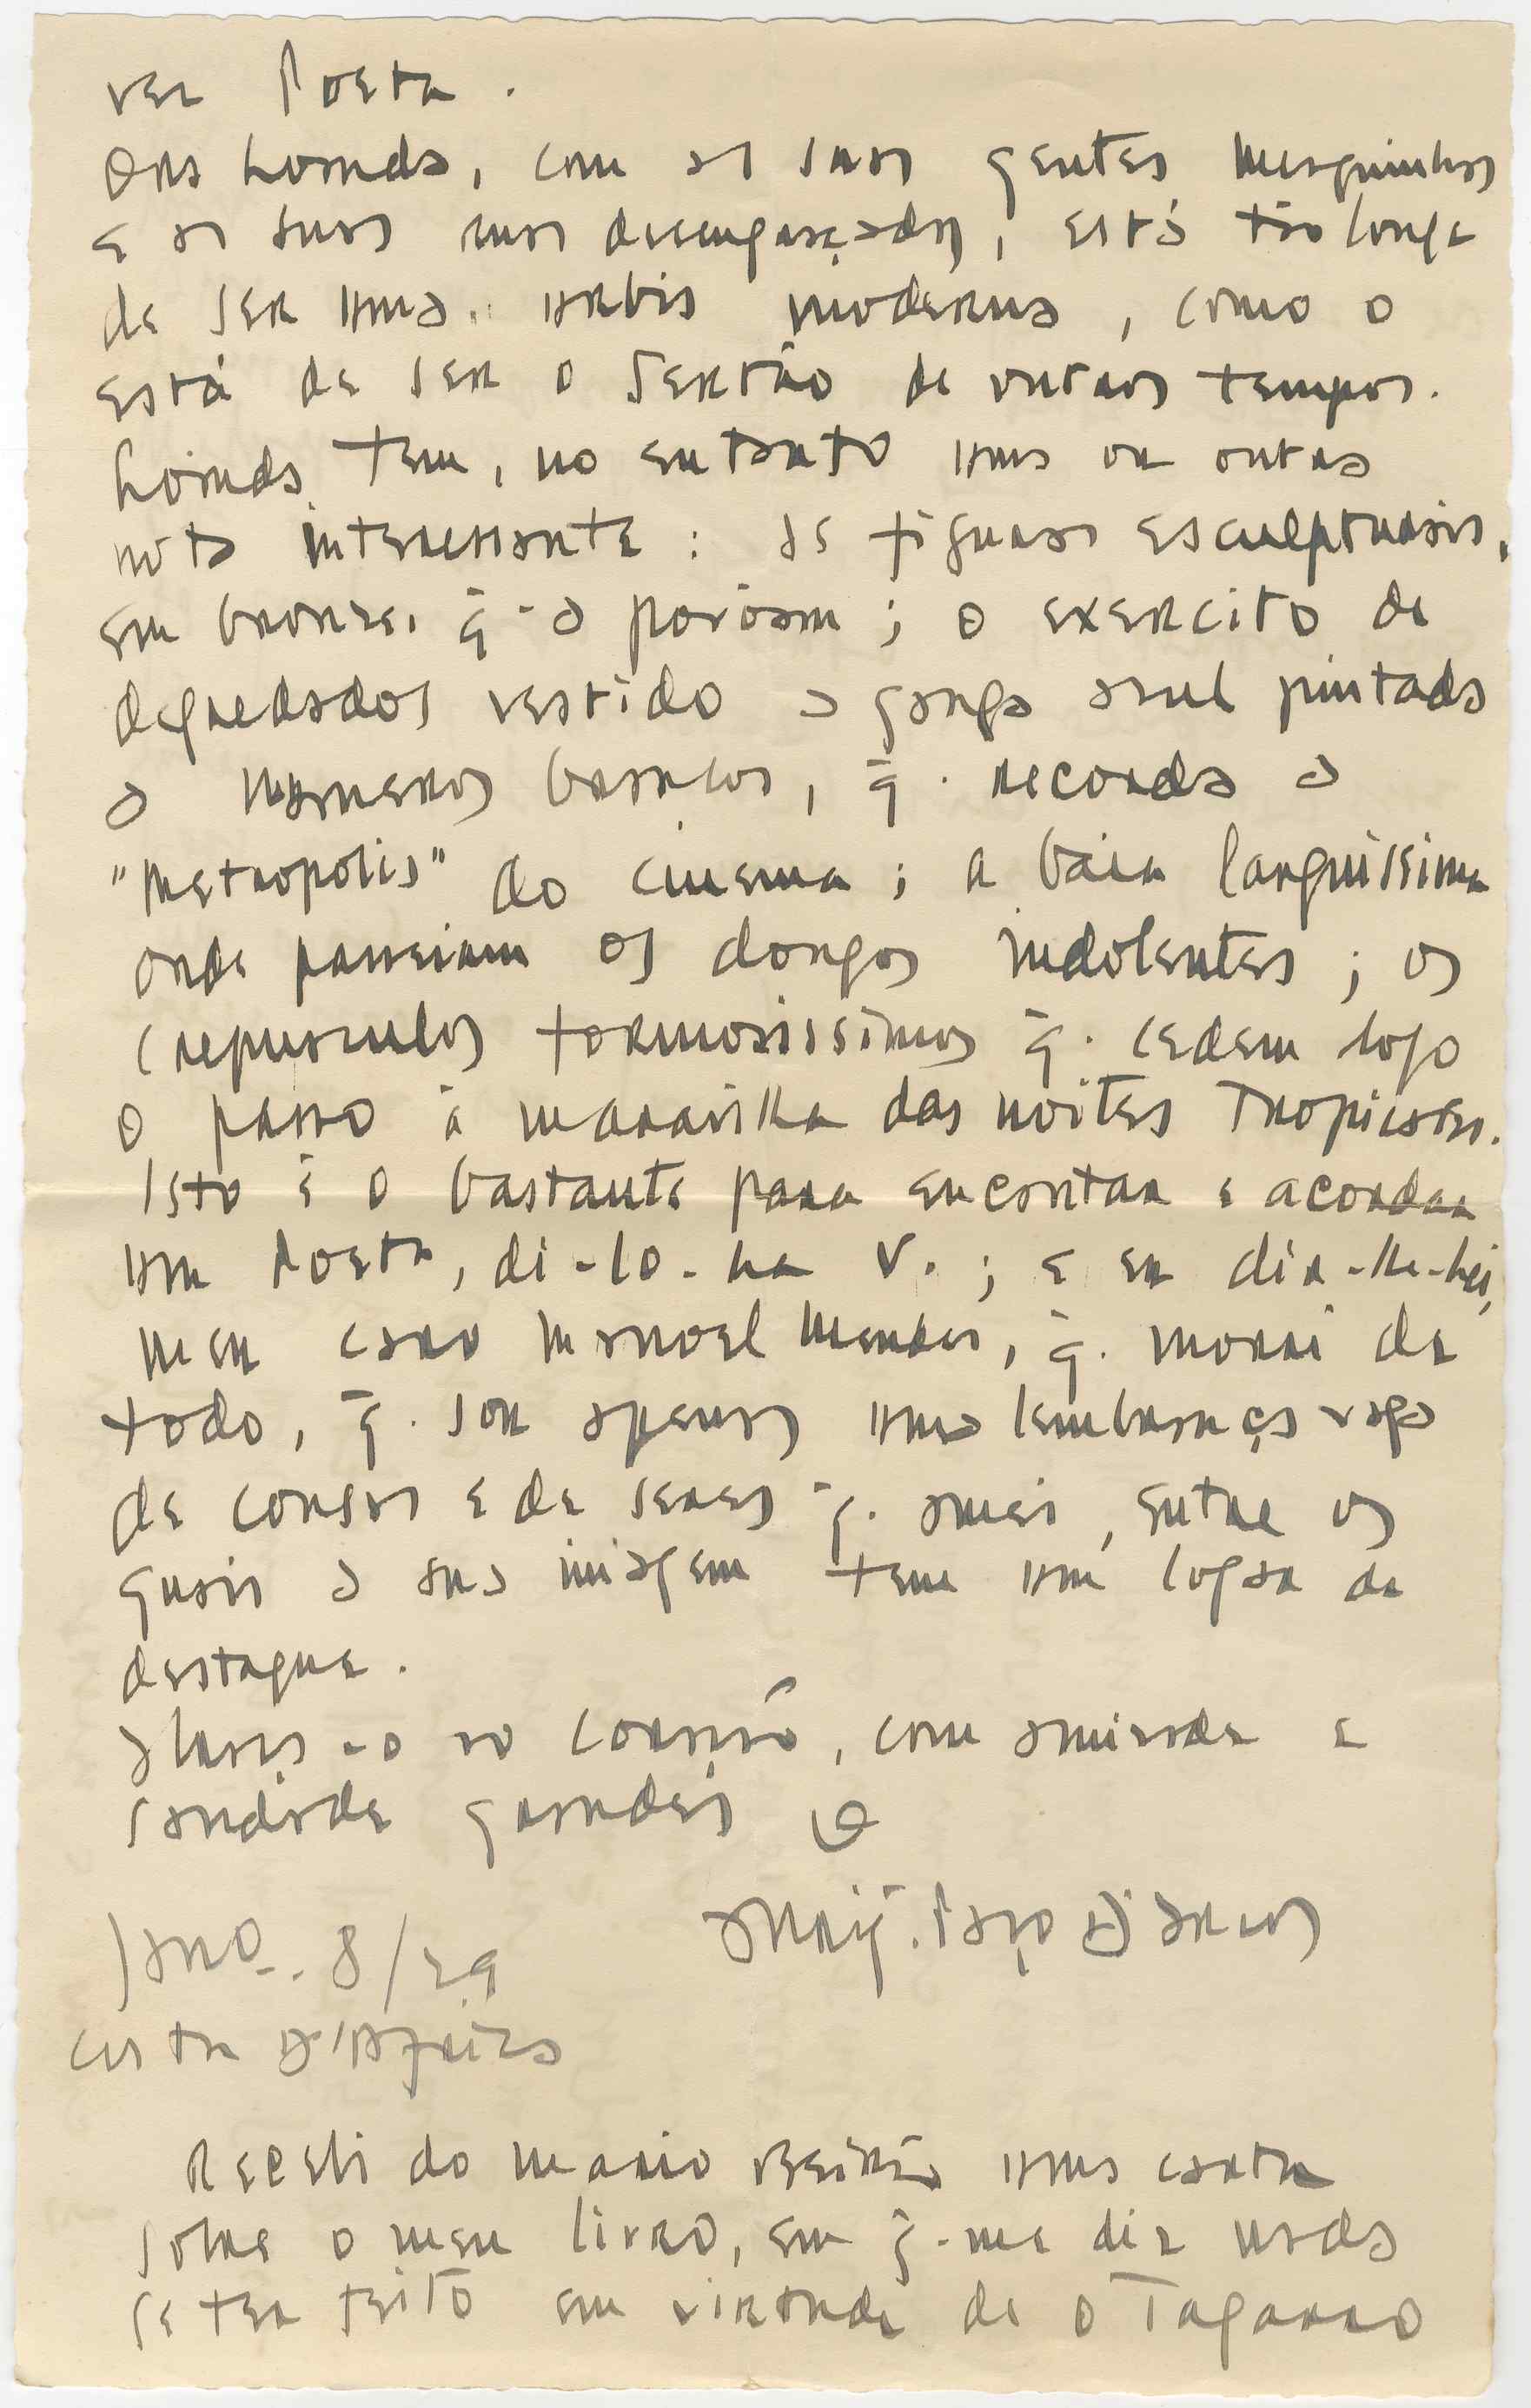 ver Poeta.
Ora Loanda, com as suas gentes mesquinhas
e as suas ruas desengraçadas, está tão longe
de ser uma urbis moderna, como o
está de ser o Sertão de outros tempos.
Loanda tem, no entanto uma ou outra
nota interessante: as figuras esculpturais,
em bronze, q̄. a povoam; o exercito de
degredados vestido a ganga azul pintada
a numeros brancos, q̄. recorda a
"Metropolis" do cinema; a baia larguissima
onde passeiam os dongos indolentes; os
crepusculos formosissimos q̄. cedem logo
o passo á maravilha das noites tropicaes.
Isto é o bastante para encontrar e acordar
um Poeta, di-lo-ha V.; e eu dir-lhe-hei,
meu caro Manoel Mendes, q̄. morri de
todo, q̄. sou apenas uma lembrança vaga
de cousas e de seres q̄. amei, entre os
quais a sua imagem tem um logar de
destaque.
Abraça-o ao coração, com amisade e
saudade grandes o
Jano. 8/29
Costa D'Africa
Recebi do Mario Beirão uma carta
sobre o meu livro, em q̄. me diz nada
se ter feito em virtude de o Tagarro